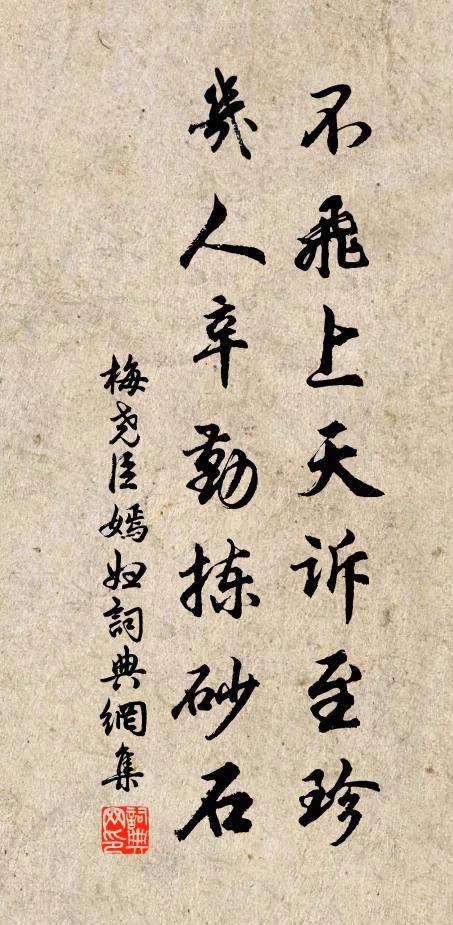 不飛上天訴至珍
幾人辛勤揀砂石
梅尧臣嫣妞詞典網集
詞典网印